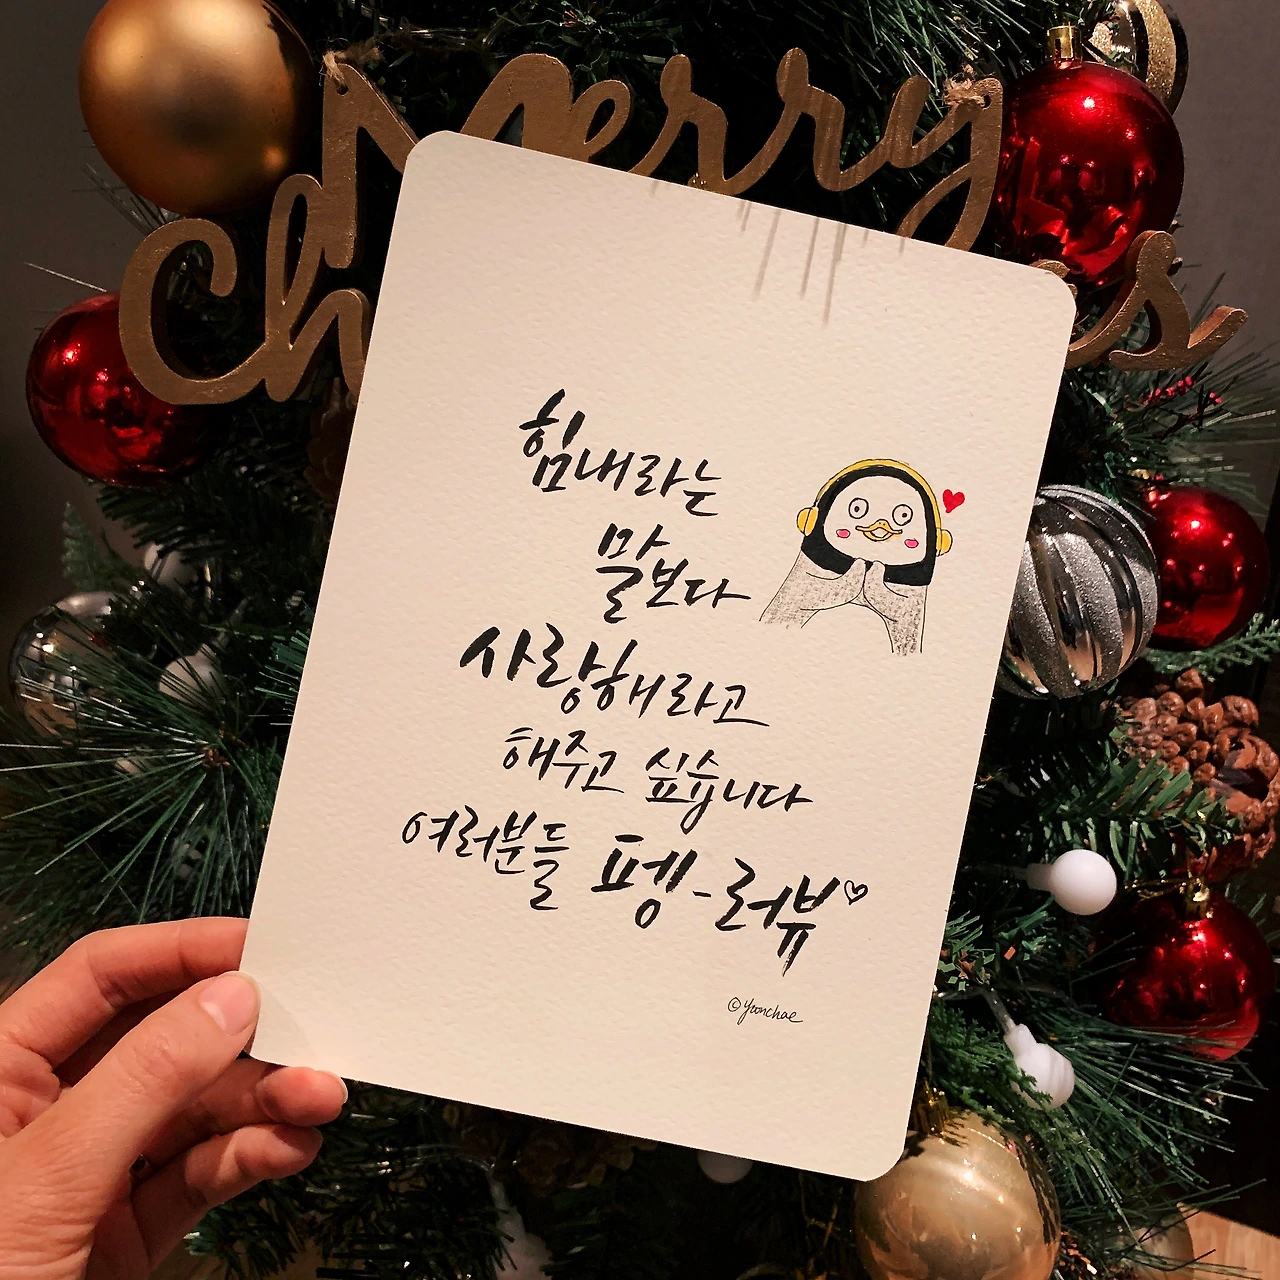 Merry
Ch s
힘내라는
말보다
사랑해라고
해주고 싶습니다
여러분들 펭-러뷰♡
© Yoonchae